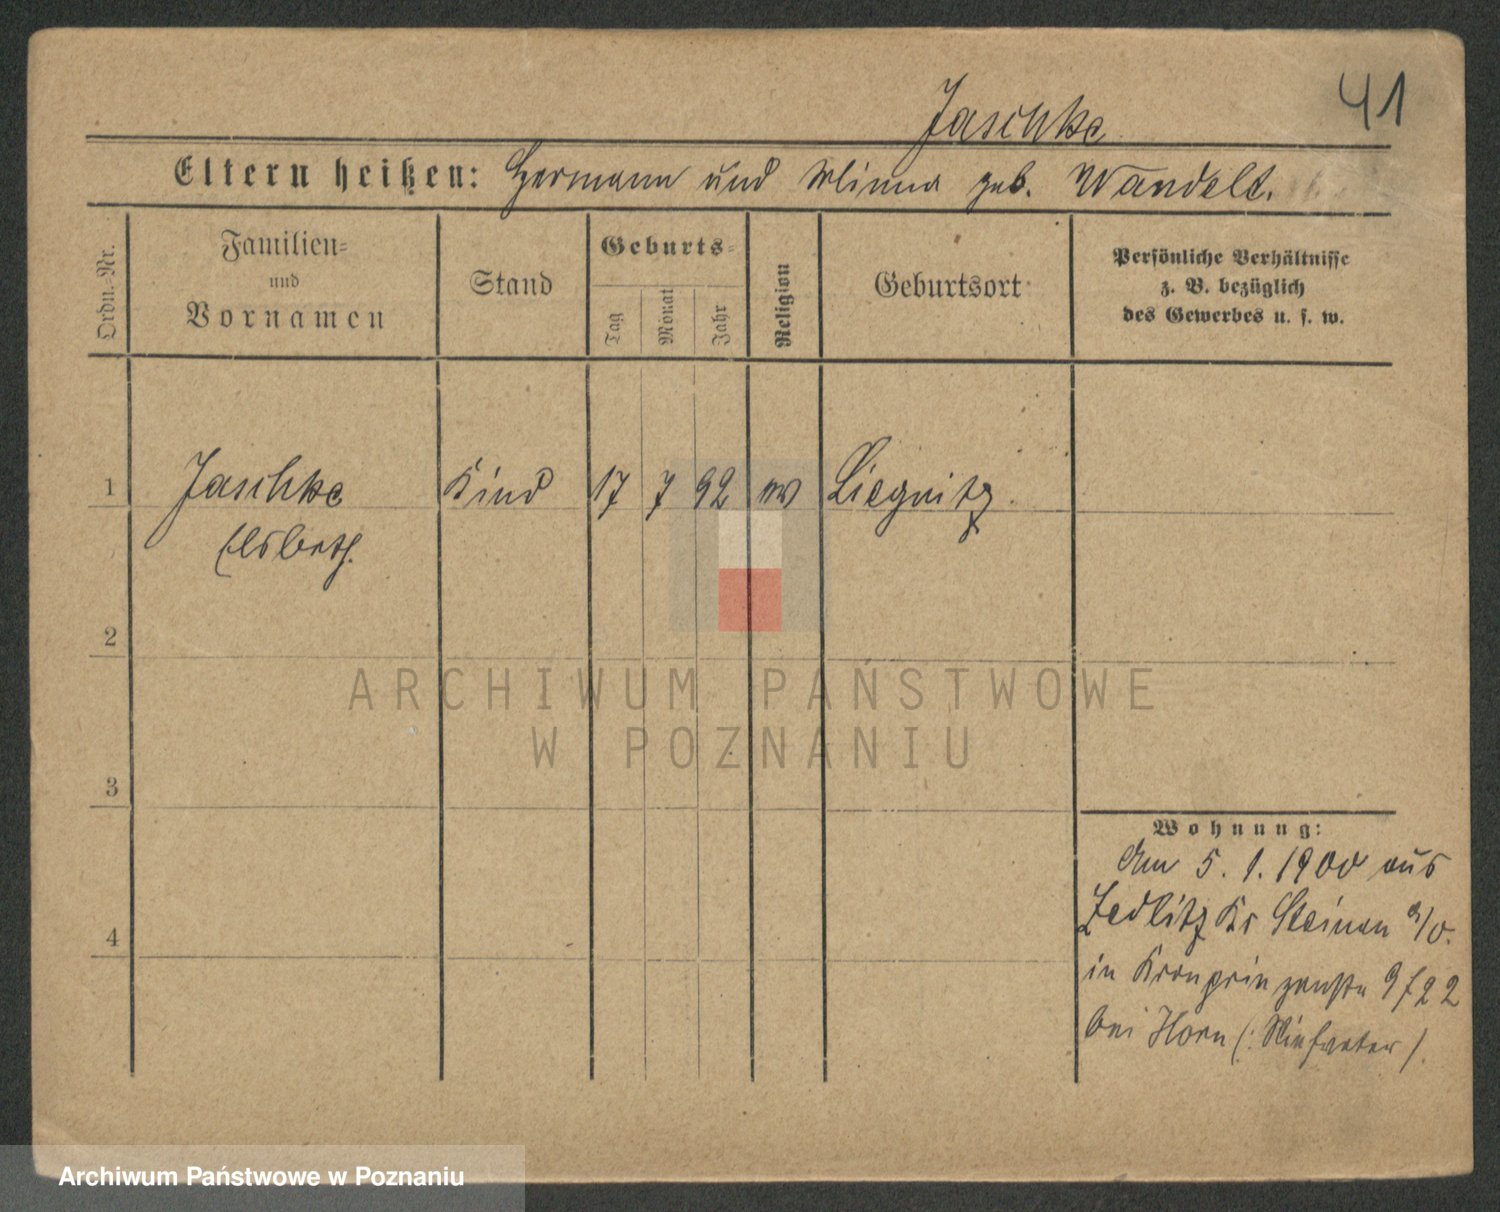 41
Jaschke
Eltern heißen: Hermann und Minna geb. Wandelt.
Ordn.-Nr.
Familien-
und
Vornamen
Stand
Geburts-
Tag
Monat
Jahr
Religion
Geburtsort
Persönliche Verhältnisse
z. B. bezüglich
des Gewerbes u. s. w.
1 Jaschke Kind 17 7 92 ev Liegnitz.
Elsbeth.
2
ARCHIWUM PAŃSTWOWE
W POZNANIU
3
Wohnung:
Am 5. 1. 1900 aus
Zedlitz Kr Steinau a/O.
in Kronprinzenstr
bei Horn
4
Archiwum Państwowe w Poznaniu